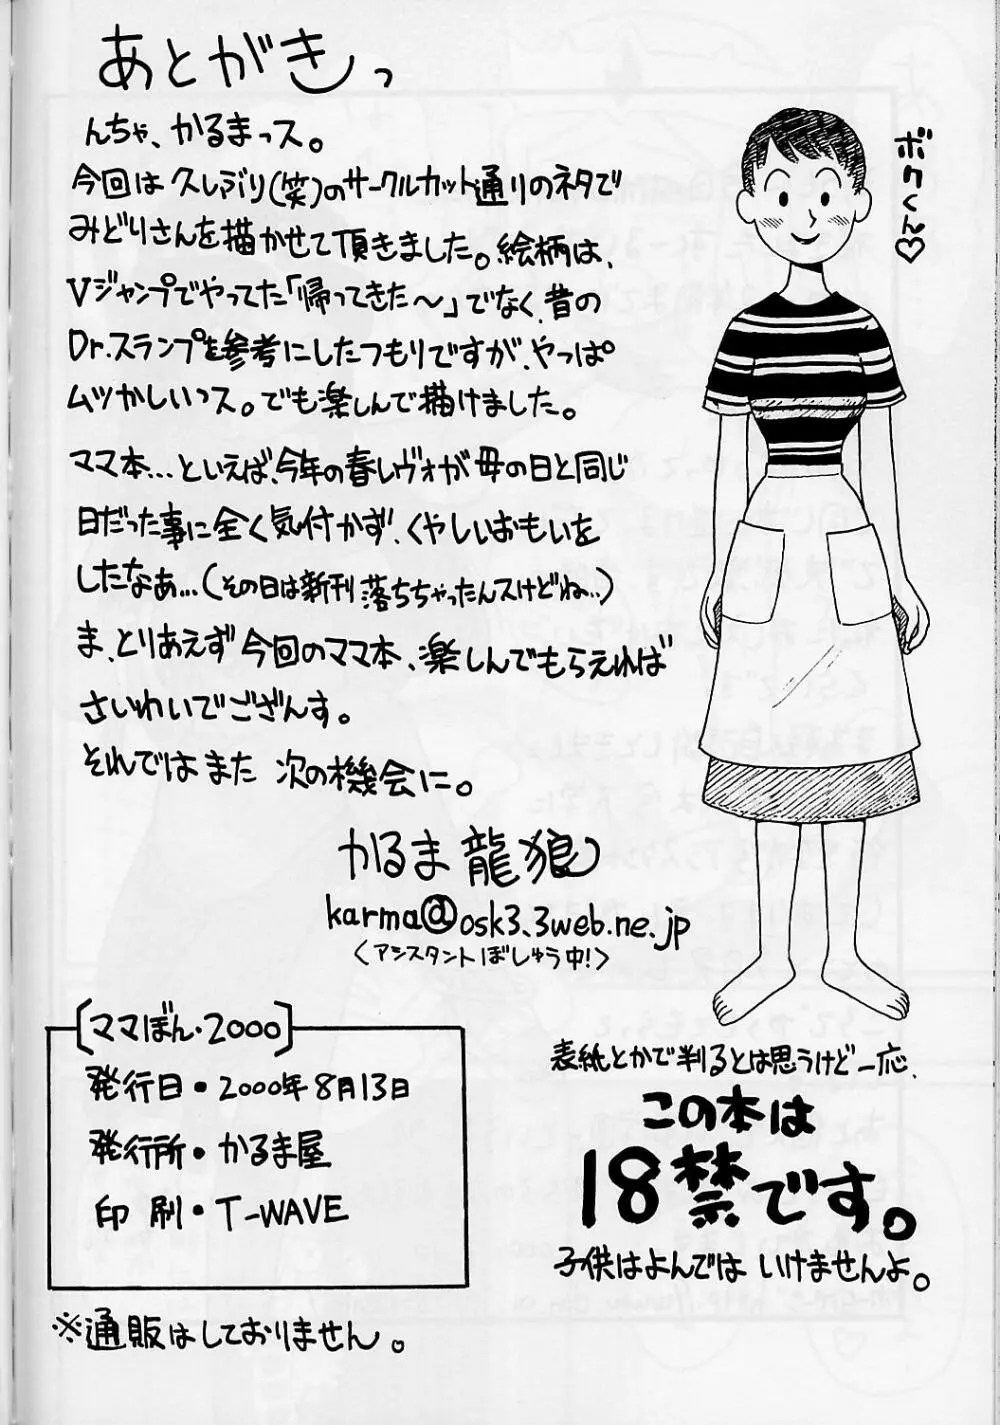 あとがきっ
んちゃ、かるまっス。
今回は久しぶり(笑)のサークルカット通りのネタで
みどりさんを描かせて頂きました。絵柄は、
Vジャンプでやってた「帰ってきた〜」でなく、昔の
Dr.スランプを参考にしたつもりですが、やっぱ
ムツかしいっス。でも楽しんで描けました。
ママ本…といえば、今年の春レヴォが母の日と同じ
日だった事に全く気付かず、くやしいおもいを
したなぁ…(その日は新刊落ちちゃったんスけどね‥)
ま、とりあえず今回のママ本、楽しんでもらえれば
さいわいでございんす。
それではまた 次の機会に。
かるま龍狼
karma@osk3.3web.ne.jp
〈アシスタントぼしゅう中!〉
ボクくん♡
[ママぼん・2000]
発行日・2000年8月13日
発行所・かるま屋
印刷・T-WAVE
※通販はしておりません。
表紙とかで判るとは思うけど一応、
この本は
18禁です。
子供はよんではいけませんよ。